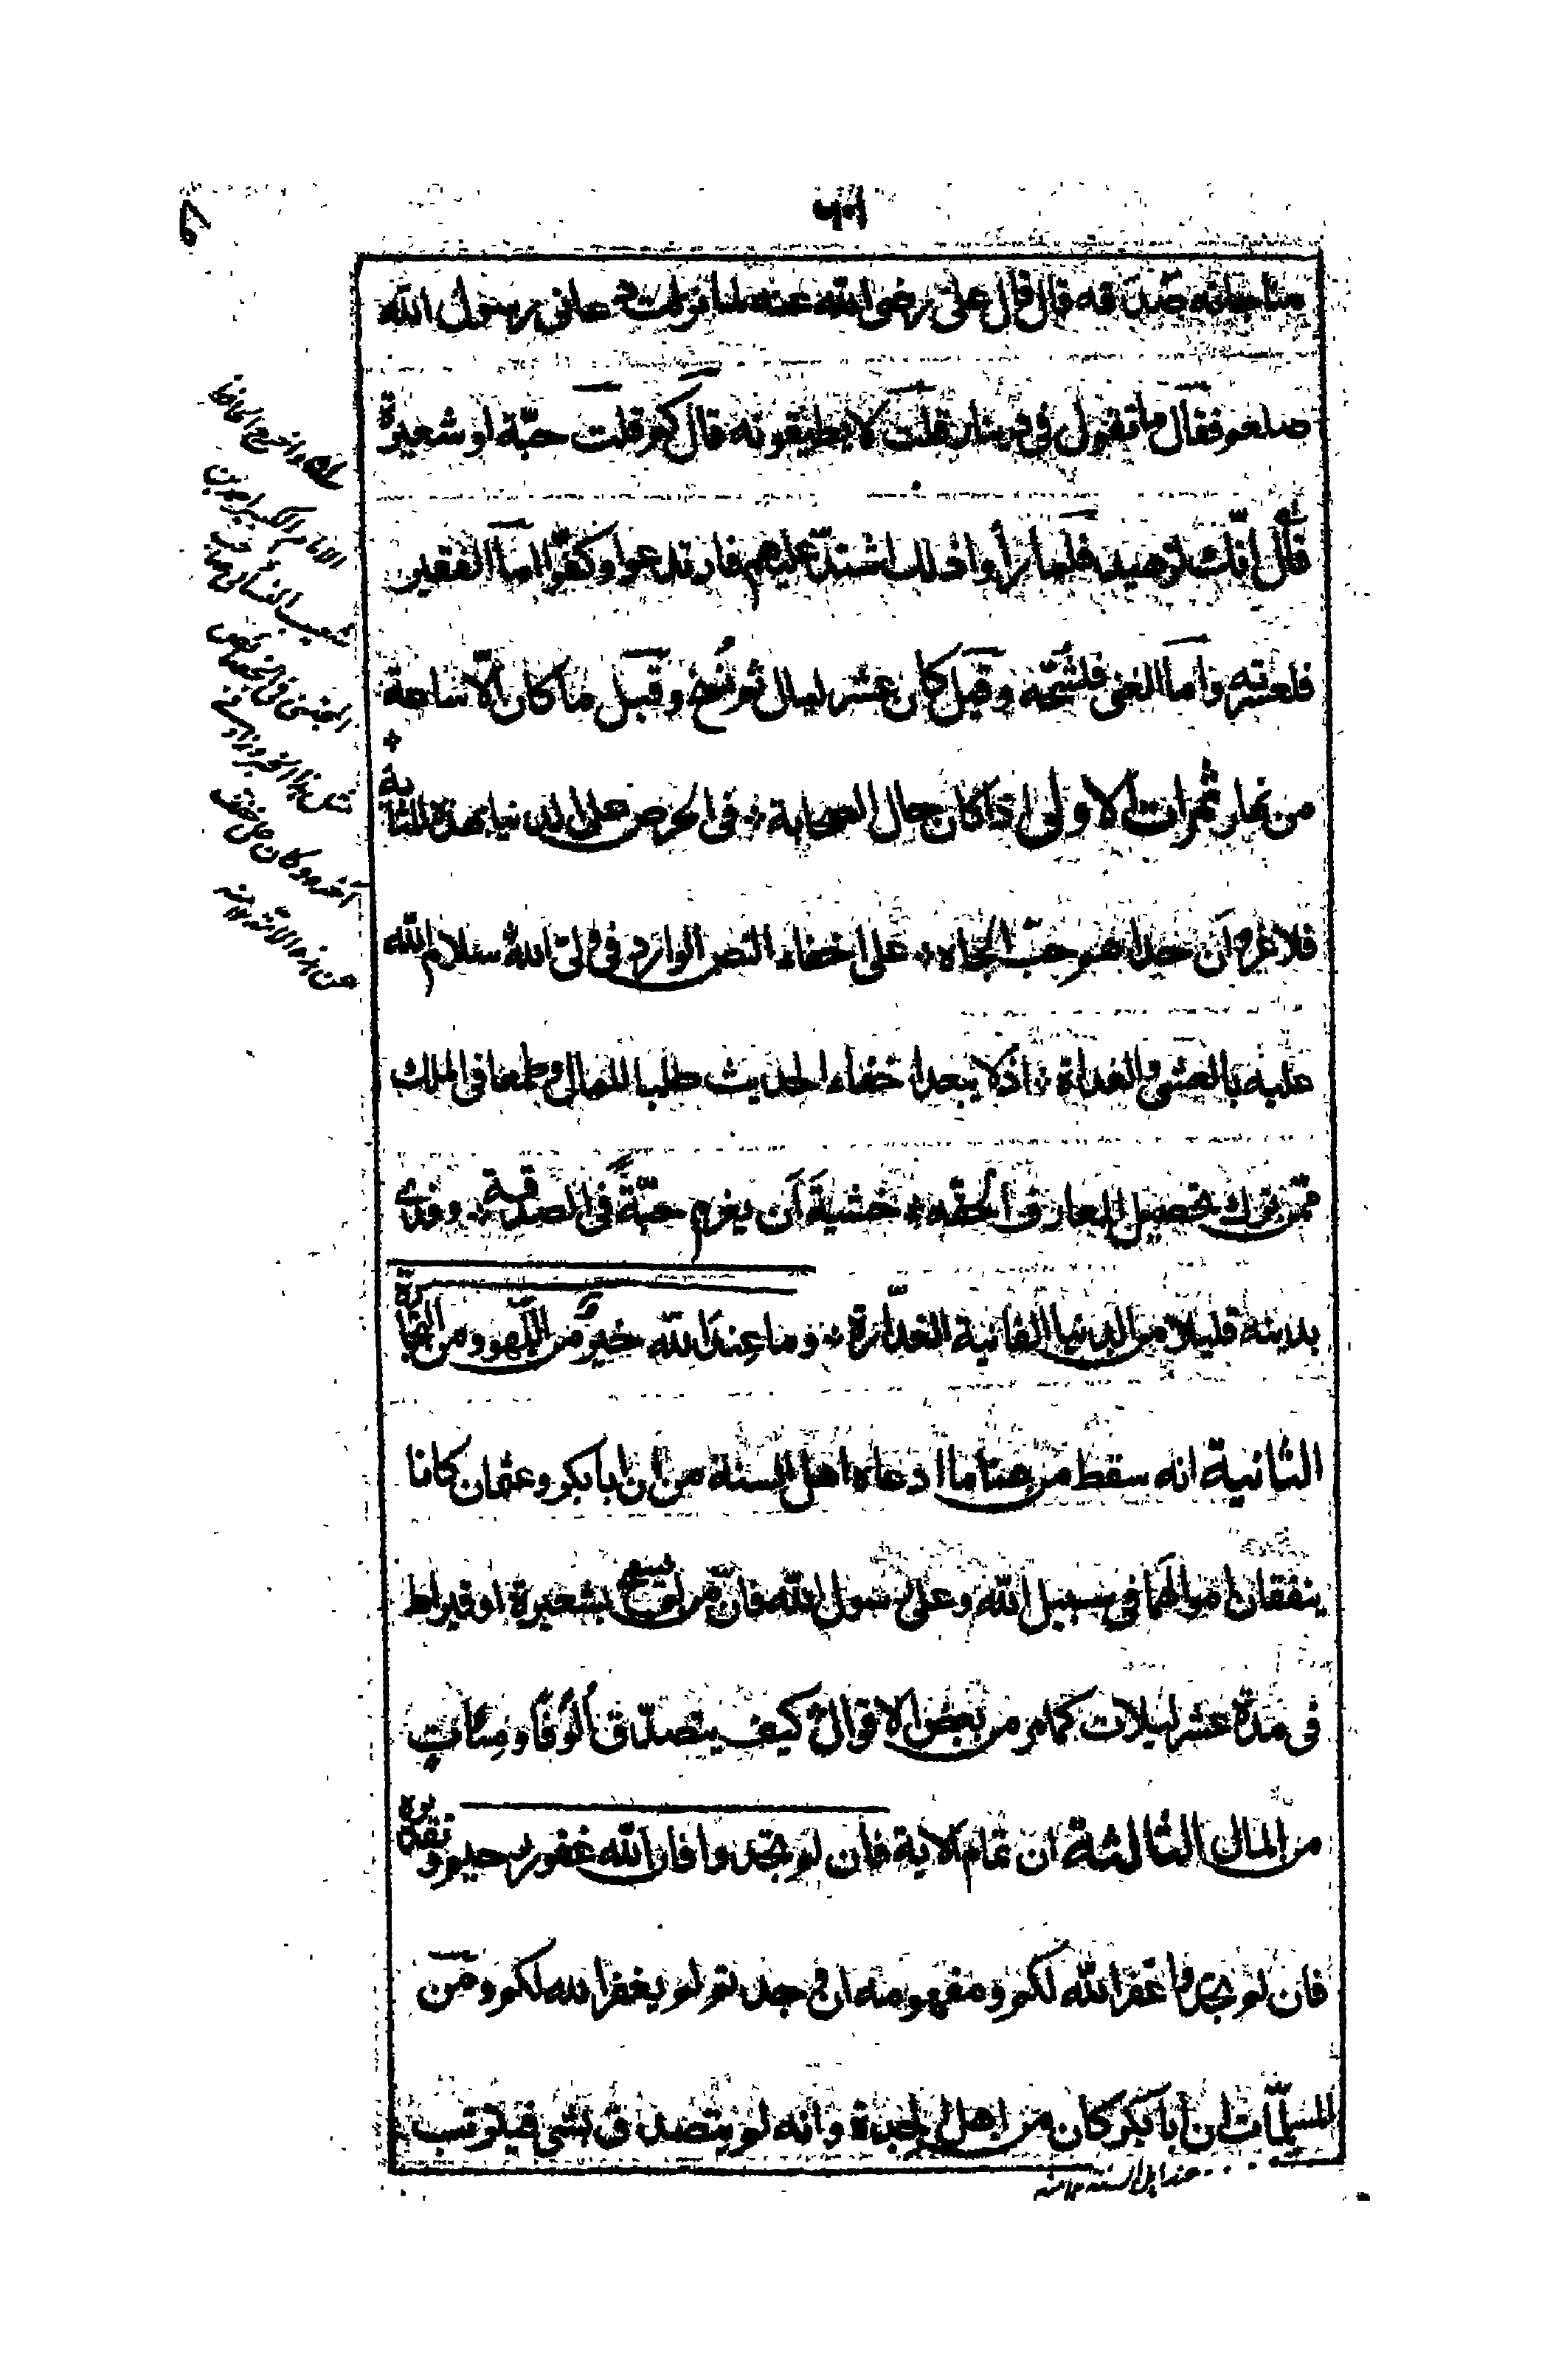 مناجاته صدقه قال قال علي رضي الله عنه لما نزلت دعاني رسول الله
صلعم فقال ما تقول في دينار قلت لا يطيقونه قال كم قلت حبّة او شعيرة
قال انّك لزهيد فلما رأوا ذلك اشتدّ عليهم فارتدعوا وكفّوا امّا الفقير
فلعسرته وامّا الغني فلشحّه وقيل كان عشر ليال ثم نُسخ وقيل ما كان الّا ساعة
من نهار ثمرات الاولى اذا كان حال الصحابة في الحرص على الدنيا بهذه المثابة
فلا غرو ان حداهم حبّ الجاه على اخفاء النص الوارد في وليّ الله سلام الله
عليه بالعشي والغداة اذ لا يبعد اخفاء الحديث طلبا للمال وطمعا في الملك
ممّن ترك تحصيل المعارف الحقه خشية أن يغرم حبّةً في الصدقة وفدى
بدينه قليلا من الدنيا الفانية الغدّارة وما عند الله خيرٌ من اللّهو ومن التجارة
الثانية انه سقط من هنا ما ادعاه اهل السنة من ان ابابكر وعثمان كانا
ينفقان اموالهما في سبيل الله وعلى رسول الله فانّ من لم يسمح بشعيرة او قيراط
في مدة عشر ليلات كما مر من بعض الاقوال كيف يتصدّق أُلوفًا ومِئاتٍ
من المال الثالثة ان تمام الاية فان لم تجدوا فان الله غفور رحيم وتقديره
فان لم تجدوا غفر الله لكم ومفهومه ان وجدتم لم يغفر الله لكم ومن
المسلّمات ان ابابكر كان من اهل الجدة وانه لم يتصدق بشي فيلا تسب
عند اهل السنه
واخرج الحافظ
الامام الكبير
شعيب النسائي
في الخصائص